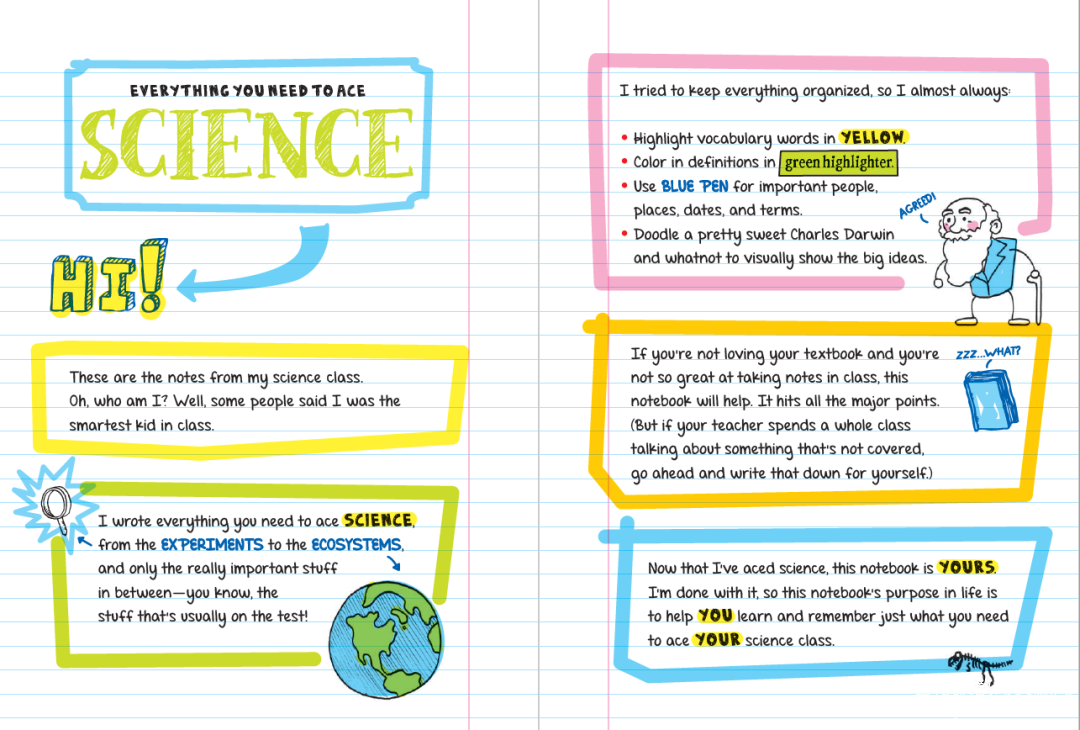 EVERYTHING YOU NEED TO ACE
SCIENCE
HI!
These are the notes from my science class.
Oh, who am I? Well, some people said I was the
smartest kid in class.
I wrote everything you need to ace SCIENCE,
from the EXPERIMENTS to the ECOSYSTEMS,
and only the really important stuff
in between—you know, the
stuff that's usually on the test!
I tried to keep everything organized, so I almost always:
• Highlight vocabulary words in YELLOW.
• Color in definitions in green highlighter.
• Use BLUE PEN for important people,
places, dates, and terms.
• Doodle a pretty sweet Charles Darwin
and whatnot to visually show the big ideas.
AGREED!
If you're not loving your textbook and you're
not so great at taking notes in class, this
notebook will help. It hits all the major points.
(But if your teacher spends a whole class
talking about something that's not covered,
go ahead and write that down for yourself.)
ZZZ...WHAT?
Now that I've aced science, this notebook is YOURS.
I'm done with it, so this notebook's purpose in life is
to help YOU learn and remember just what you need
to ace YOUR science class.